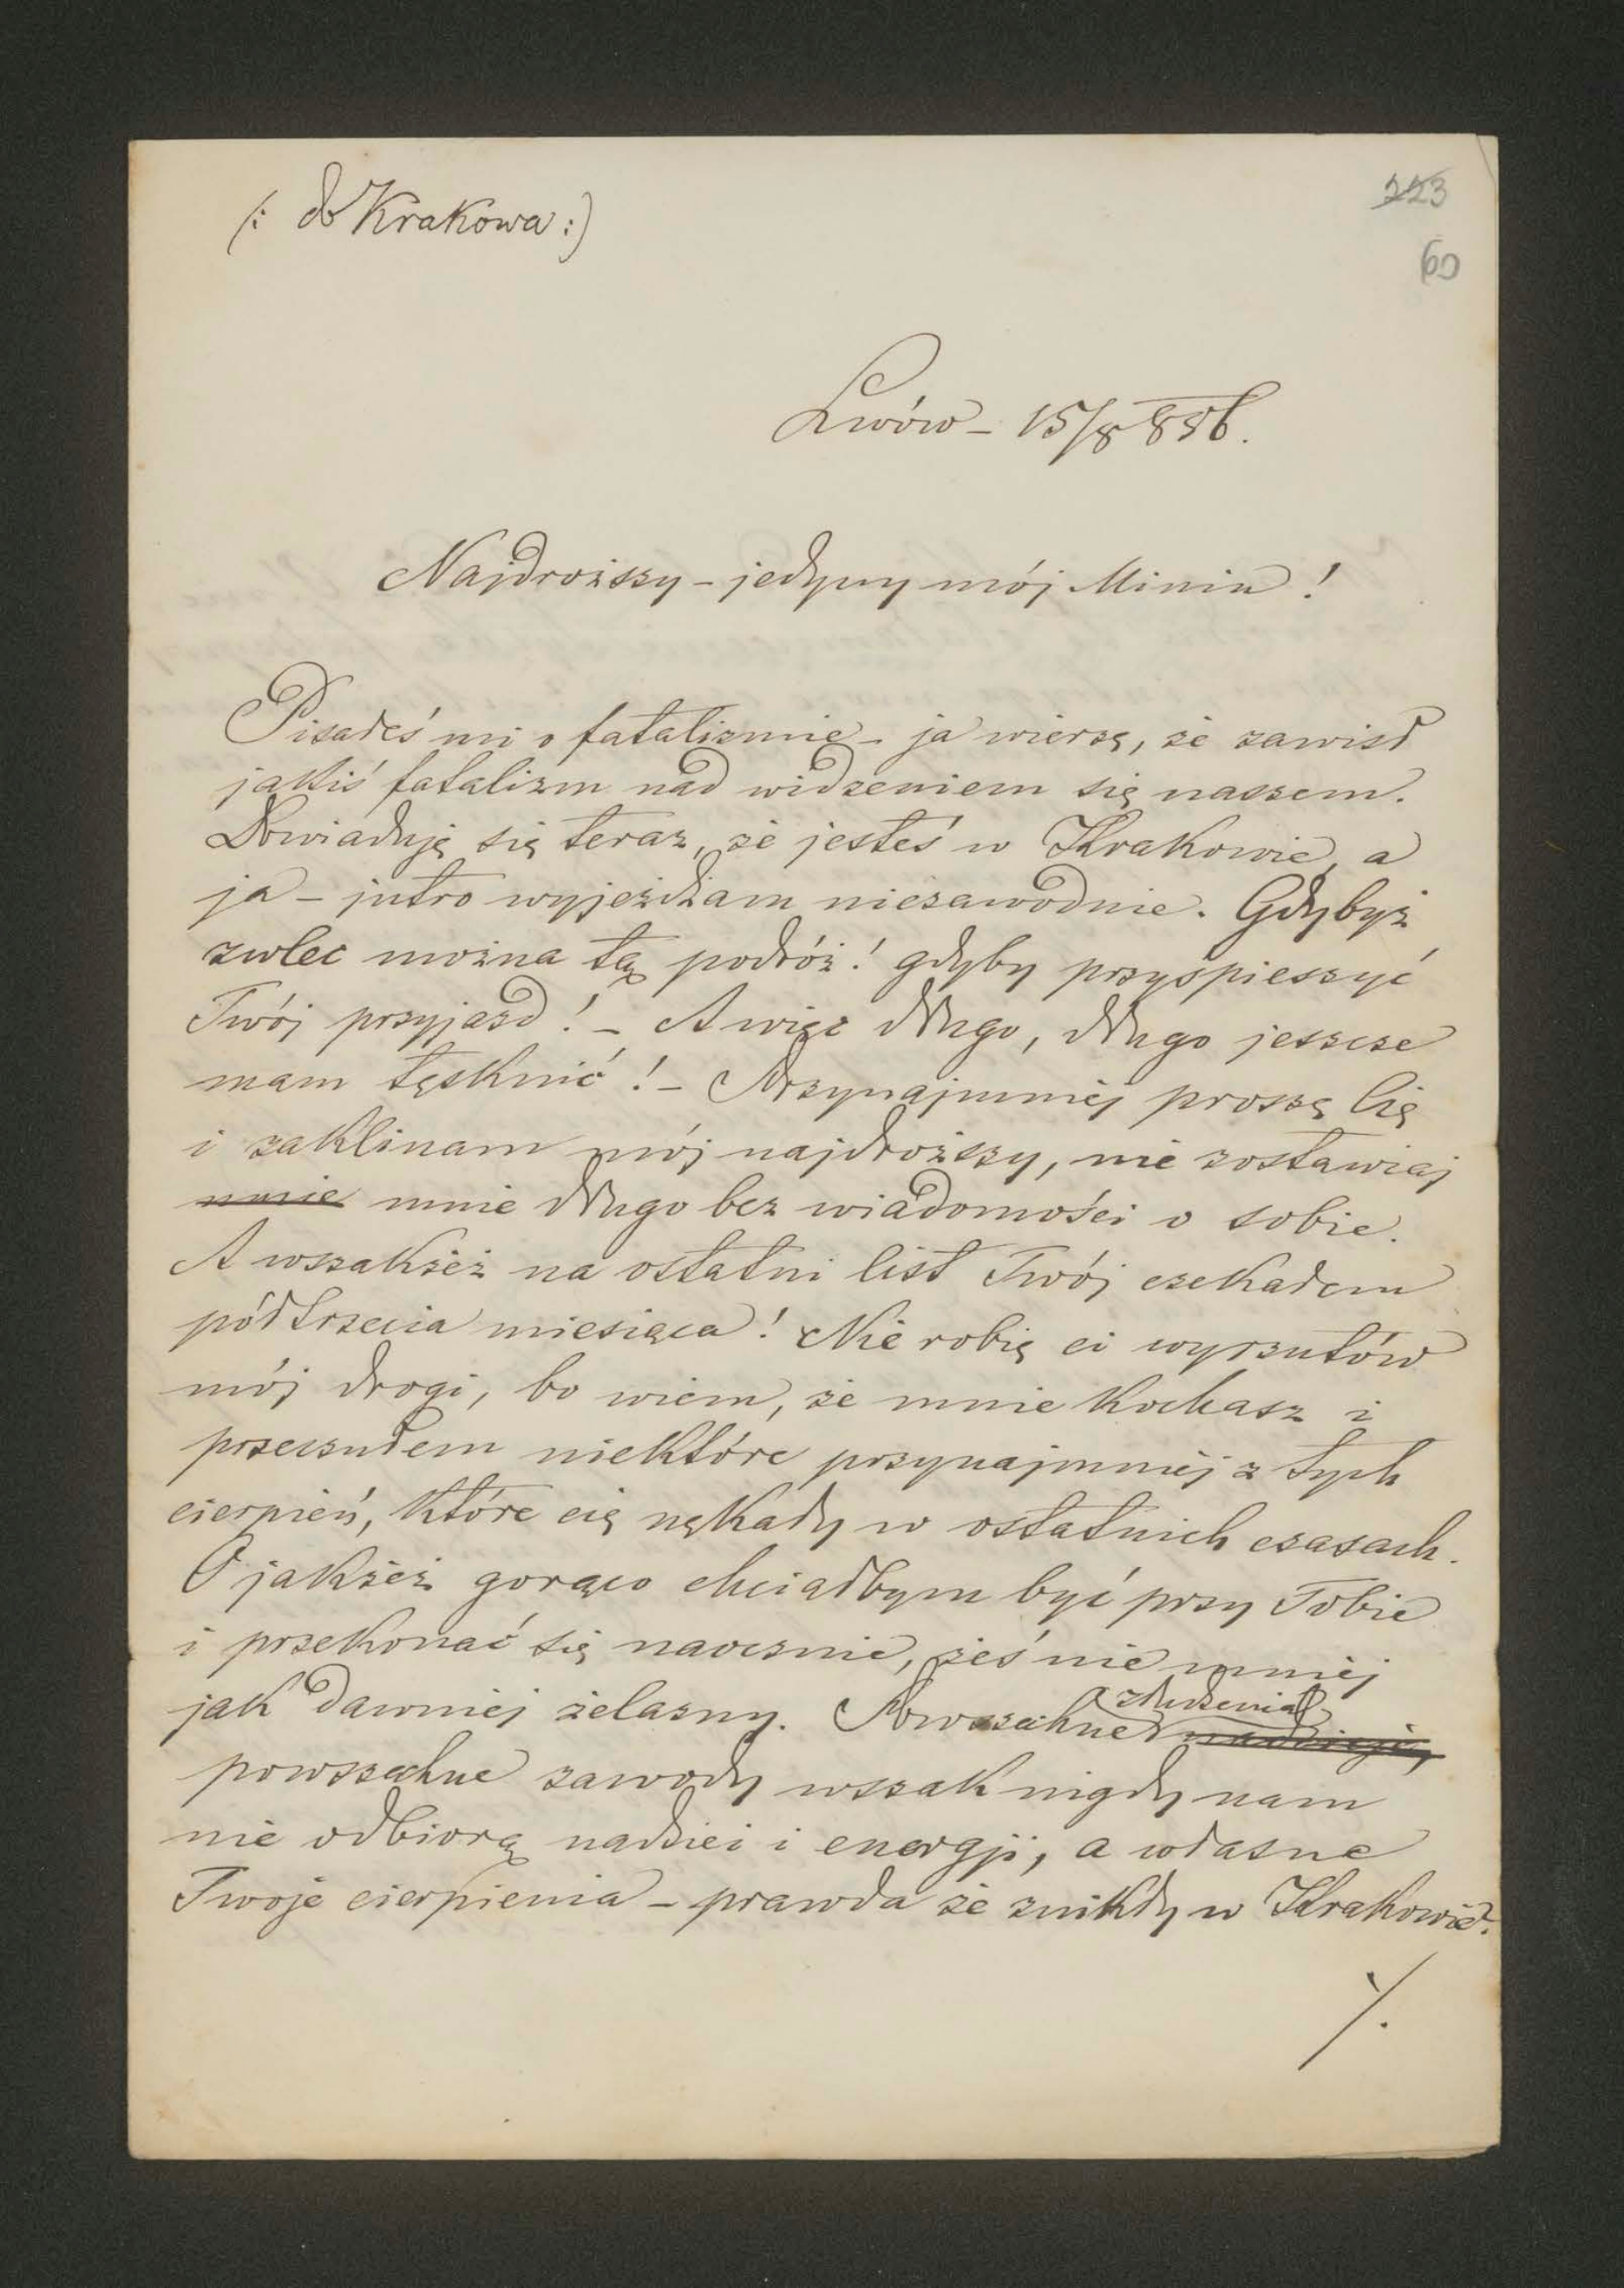 (: do Krakowa :)
223
60
Lwów - 15/8 886.
Najdroższy - jedyny mój Miniu!
Pisałeś mi o fatalizmie - ja wierzę, że zawisł
jakiś fatalizm nad widzeniem się naszem.
Dowiaduję się teraz, że jesteś w Krakowie, a
ja - jutro wyjeżdżam niezawodnie. Gdybyż
zwlec można tę podróż! gdyby przyśpieszyć
Twój przyjazd! - A więc długo, długo jeszcze
mam tęsknić! - Przynajmniej proszę Cię
i zaklinam mój najdroższy, nie zostawiaj
mnie mnie długo bez wiadomości o sobie.
A wszakżeż na ostatni list Twój czekałem
półtrzecia miesiąca! Nie robię ci wyrzutów
mój drogi, bo wiem, że mnie kochasz i
przeczułem niektóre przynajmniej z tych
cierpień, które cię nękały w ostatnich czasach.
O jakżeż gorąco chciałbym być przy Tobie
i przekonać się naocznie, żeś nie mniej
jak dawniej żelazny. Powszechne złudzenia nadzieje,
powszechne zawody wszak nigdy nam
nie odbiorą nadziei i energji, a własne
Twoje cierpienia - prawda że znikły w Krakowie?
./.